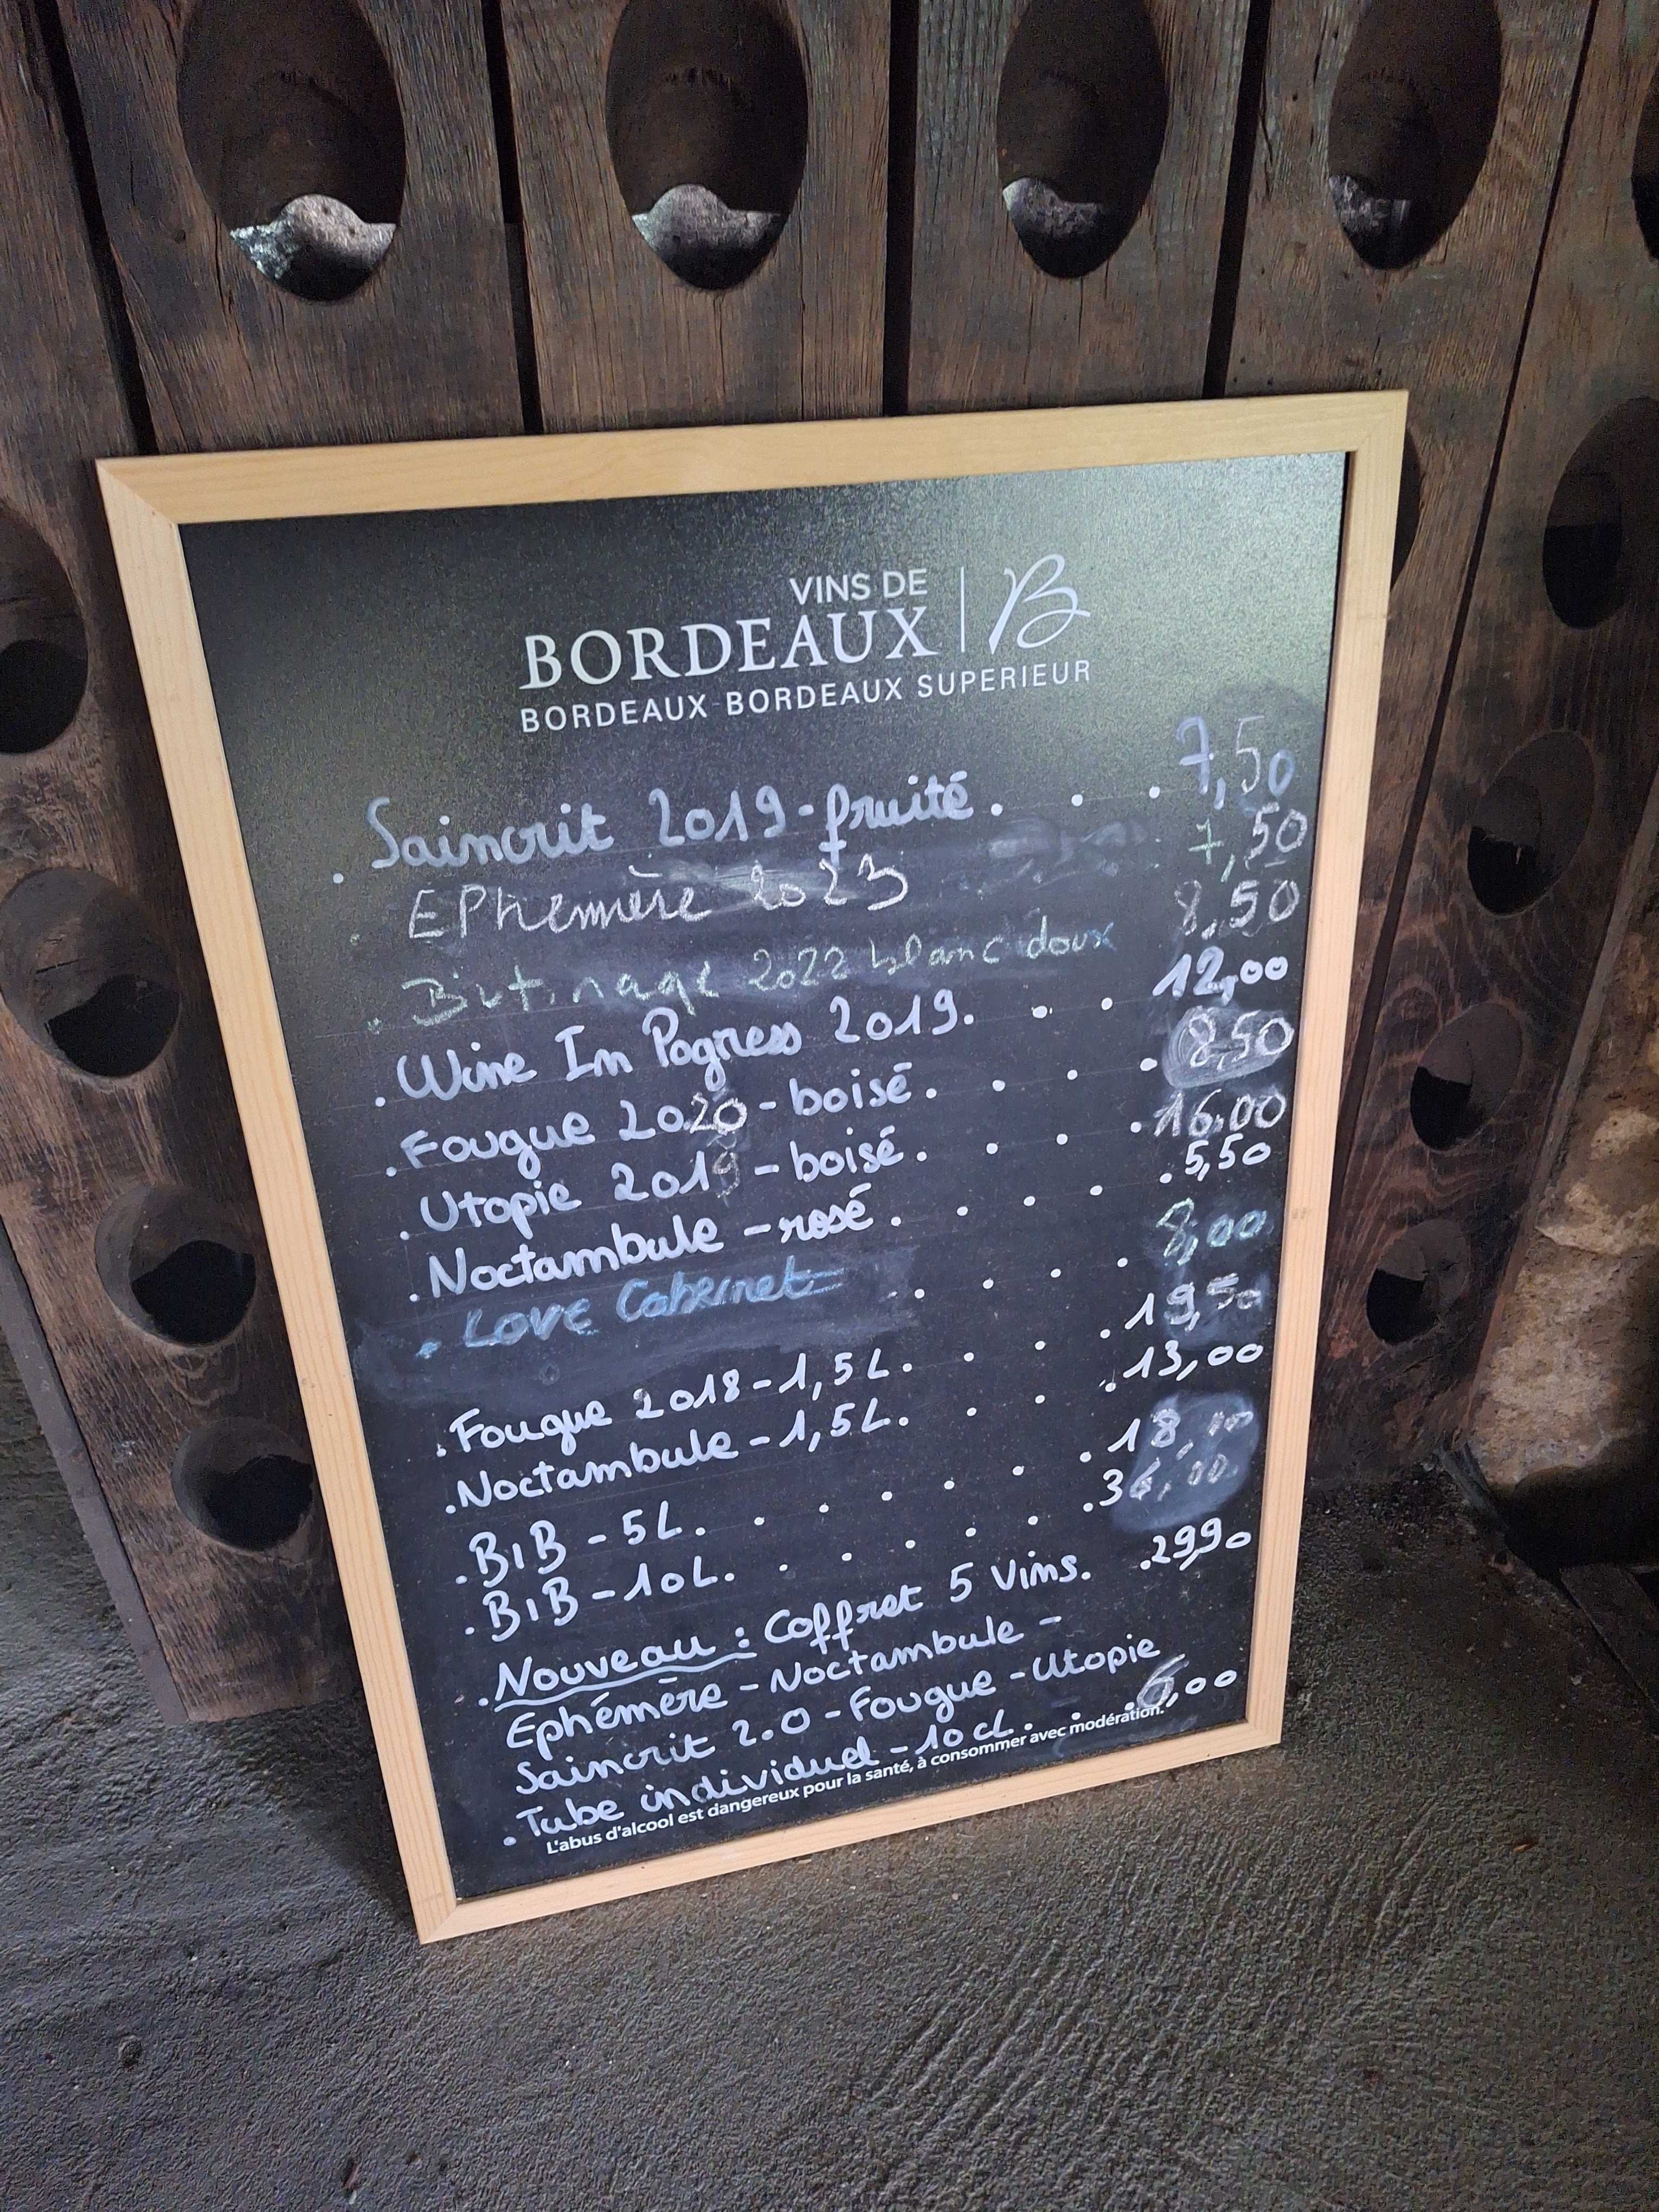 VINS DE
BORDEAUX | B
BORDEAUX BORDEAUX SUPERIEUR
. Saincrit 2019-fruité. . . 7,50
. EPhemère 2023 7,50
. Butinage 2022 blanc doux 8,50
. Wine In Pogress 2019. . . 12,00
. Fougue 2020 - boisé. . . . 8,50
. Utopie 2019 - boisé. . . . 16,00
. Noctambule - rosé. . . . . 5,50
. LOVE Cabernet . . . . 8,00
. Fougue 2018 - 1,5L. . . . 19,50
. Noctambule - 1,5L. . . . 13,00
. BIB - 5L. . . . . . . 18,00
. BIB - 10L. . . . . . . 36,00
. Nouveau : Coffret 5 Vins. . 29,90
Ephémère - Noctambule -
Saincrit 2.0 - Fougue - Utopie
. Tube individuel - 10 cL. . . 6,00
L'abus d'alcool est dangereux pour la santé, à consommer avec modération.